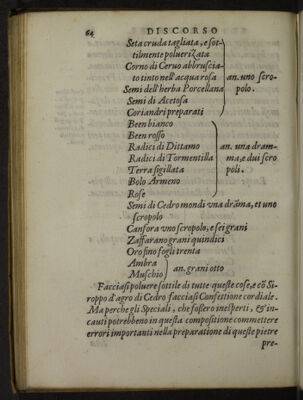 64 DISCORSO
Seta cruda tagliata, e sot-
tilmente poluerizata
Corno di Ceruo abbruscia-
to tinto nell'acqua rosa
Semi dell'herba Porcellana
Semi di Acetosa
Coriandri preparati
an. uno scro-
polo.
Been bianco
Been rosso
Radici di Dittamo
Radici di Tormentilla
Terra sigillata
Bolo Armeno
Rose
an. una dram-
ma, e dui scro
poli.
Semi di Cedro mondi vna drāma, et uno
scropolo
Canfora vno scropolo, e sei grani
Zaffarano grani quindici
Oro fino fogli trenta
Ambra
Muschio
an. grani otto
Facciasi poluere sottile di tutte queste cose, e cō Si-
roppo d'agro di Cedro facciasi Confettione cordiale.
Ma perche gli Speciali, che fossero inesperti, & in-
cauti potrebbeno in questa compositione commettere
errori importanti nella preparatione di queste pietre
pre-